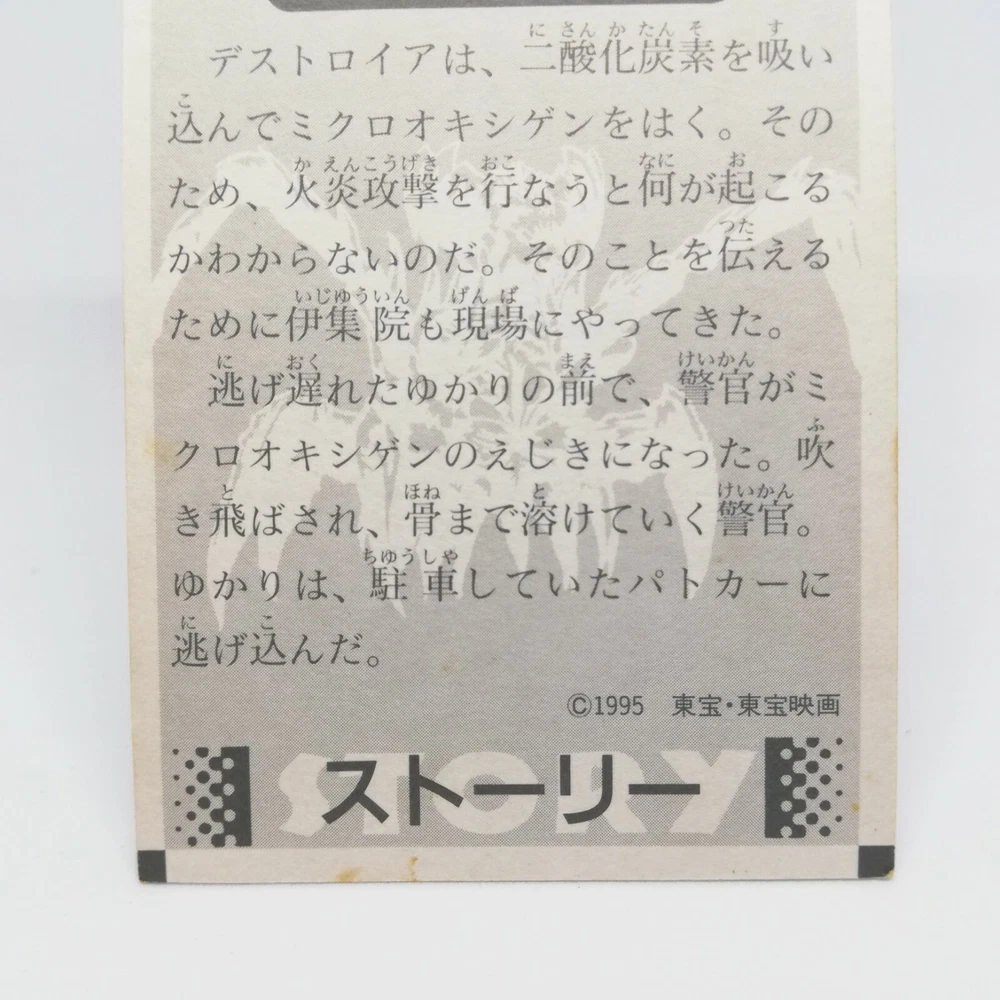 デストロイアは、二酸化炭素を吸い
込んでミクロオキシゲンをはく。その
ため、火炎攻撃を行なうと何が起こる
かわからないのだ。そのことを伝える
ために伊集院も現場にやってきた。
逃げ遅れたゆかりの前で、警官がミ
クロオキシゲンのえじきになった。吹
き飛ばされ、骨まで溶けていく警官。
ゆかりは、駐車していたパトカーに
逃げ込んだ。
©1995 東宝・東宝映画
STORY
ストーリー